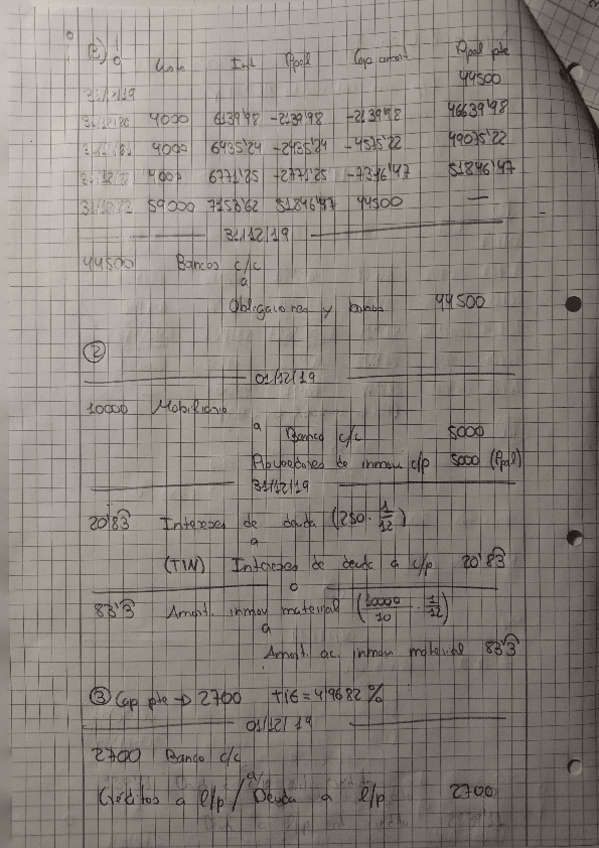 Cuota Int Ppal Cap amort Ppal pte
44500
31/12/19
31/12/20 4000 6139'98 -2139'98 -2139'98 46639'98
4000 6435'24 -2435'24 -4575'22 49075'22
4000 6771'25 -2771'25 -7346'47 51846'47
59000 7153'62 51846'47 44500 —
31/12/19
44500 Bancos c/c
a
Obligaciones y bonos 44500
②
01/12/19
10000 Mobiliario
a Banco c/c 5000
Proveedores de inmov c/p 5000 (Ppal)
31/12/19
20'83 Intereses de deuda (250 · 1/12)
a
(TIN) Intereses de deuda a c/p 20'83
0
83'3 Amort. inmov material (10000/10 · 1/12)
a
Amort. ac. inmov material 83'3
③ Cap pte → 2700 TIE = 4'9682 %
01/12/19
2700 Banco c/c
a
Créditos a l/p / Deuda a l/p 2700